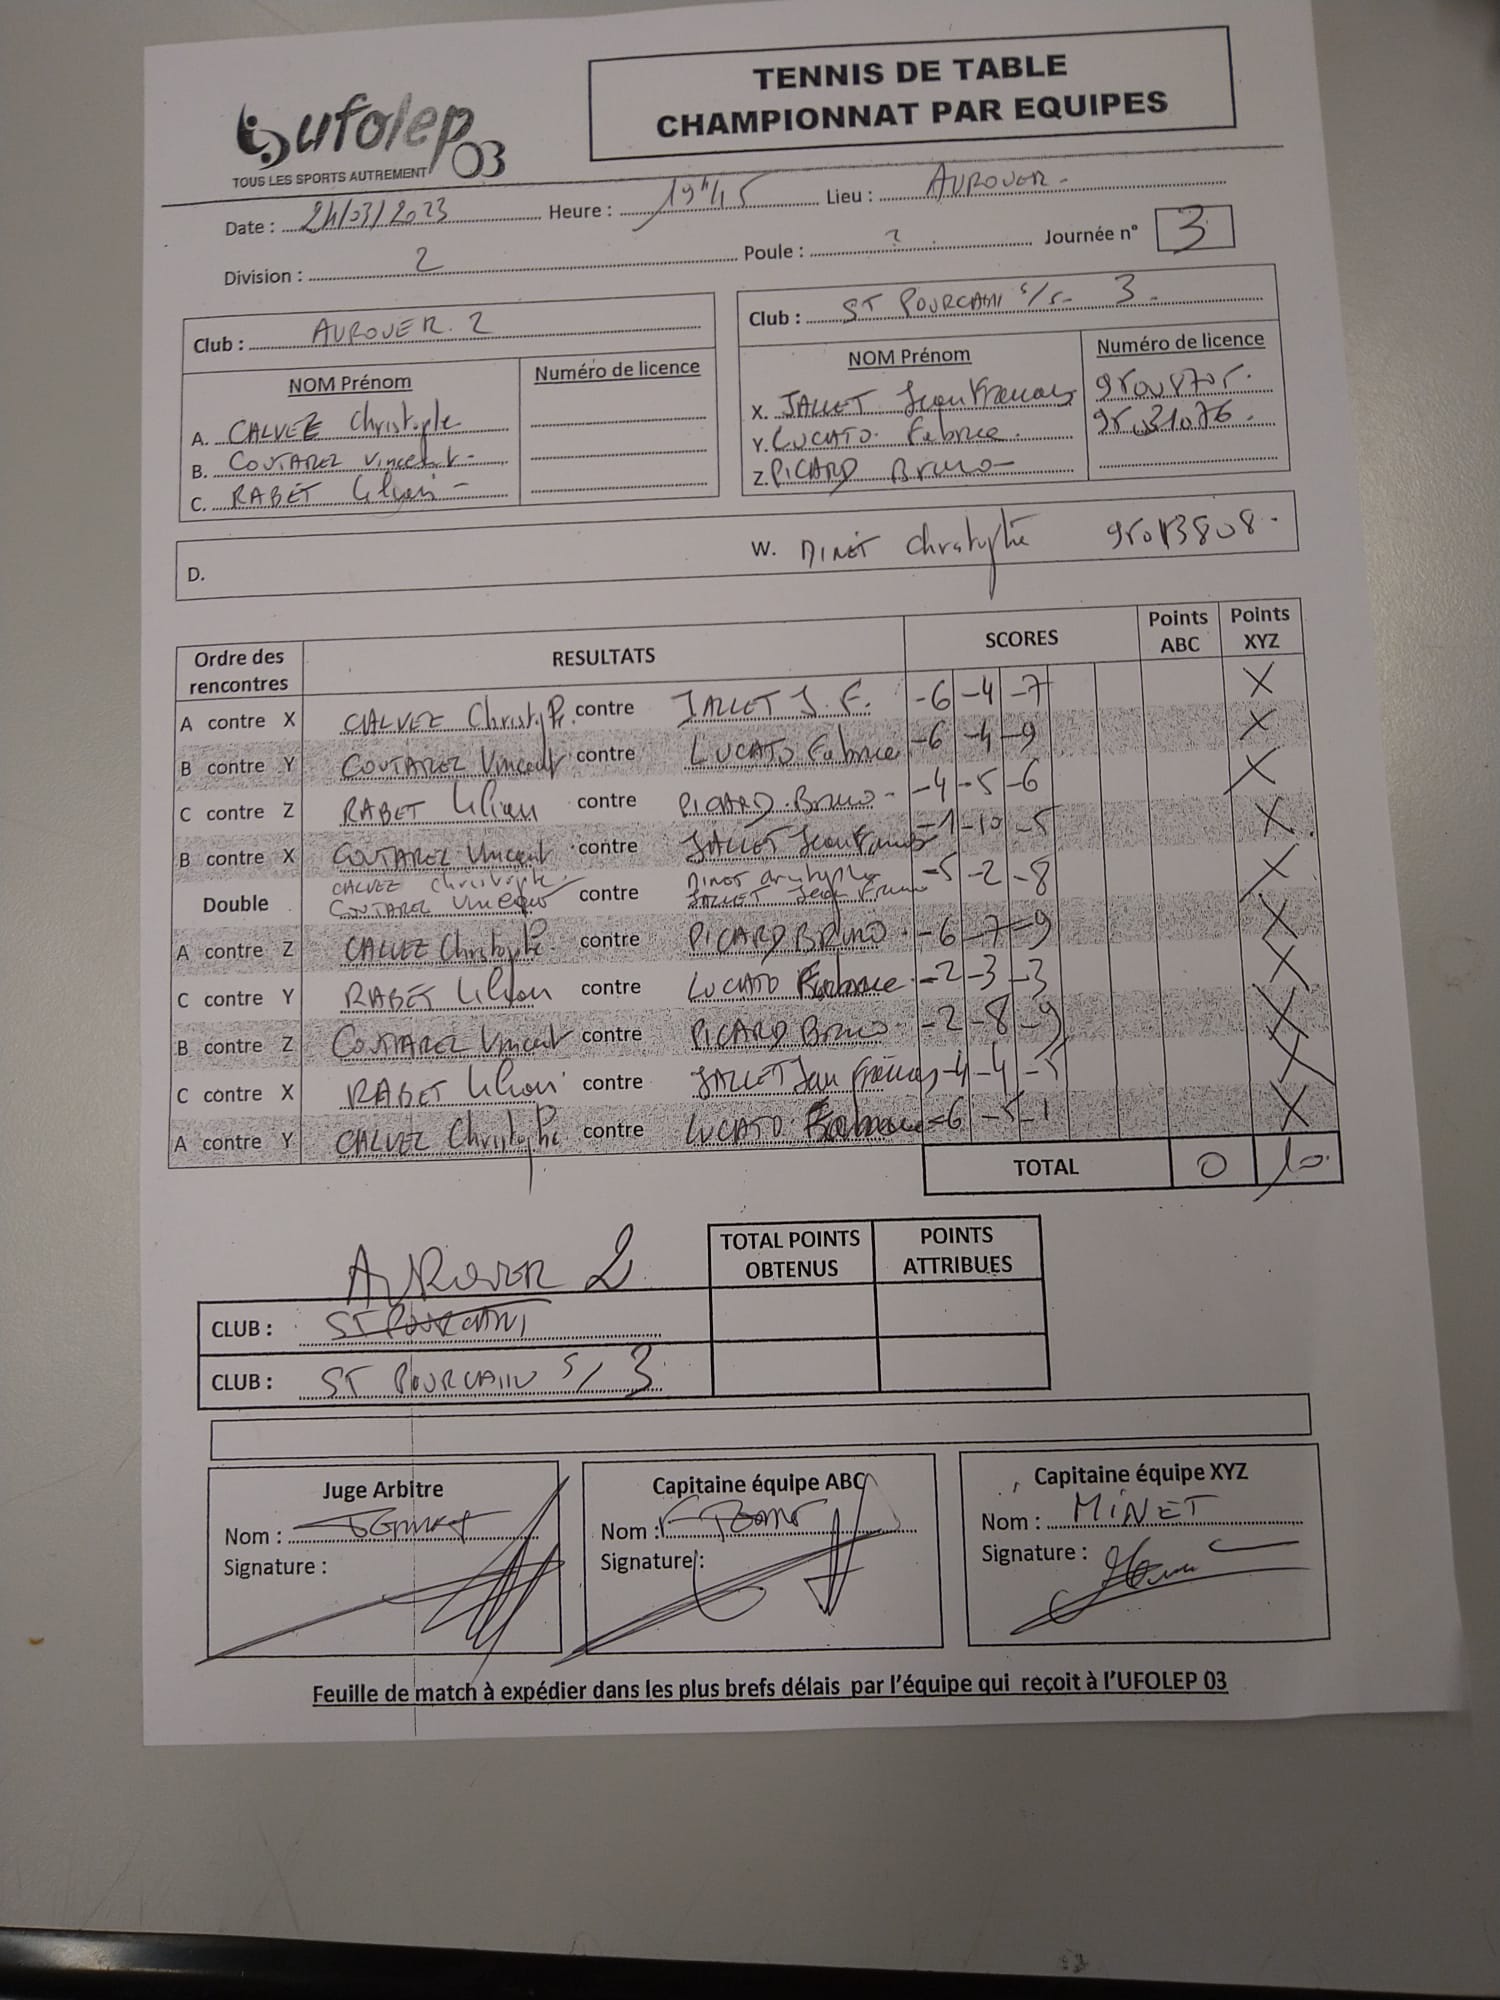 TENNIS DE TABLE
CHAMPIONNAT PAR EQUIPES
ufolep 03
TOUS LES SPORTS AUTREMENT
Date : 24/03/2023 Heure : 19h45 Lieu : AUROUER
Division : 2 Poule : ? Journée n° 3
Club : AUROUER. 2
NOM Prénom Numéro de licence
A. CALVEZ Christophe
B. COUTAREZ Vincent
C. RABET Lilian
Club : ST POURCAIN s/s 3
NOM Prénom Numéro de licence
X. JALLET Jean Francois
Y. LUCATO Fabrice 95031076
Z. PICARD Bruno
D. W. MINET Christophe 95013808
Ordre des rencontres RESULTATS SCORES Points ABC Points XYZ
A contre X CALVEZ Christophe contre JALLET J. F. -6 -4 -7 X
B contre Y COUTAREZ Vincent contre LUCATO Fabrice -6 -4 -9 X
C contre Z RABET Lilian contre PICARD Bruno -4 -5 -6 X
B contre X COUTAREZ Vincent contre JALLET Jean Francois -1 -10 -5 X
Double CALVEZ Christophe COUTAREZ Vincent contre MINET Christophe JALLET Jean Franc -5 -2 -8 X
A contre Z CALVEZ Christophe contre PICARD BRUNO -6 -7 -9 X
C contre Y RABET Lilian contre LUCATO Fabrice -2 -3 -3 X
B contre Z COUTAREZ Vincent contre PICARD Bruno -2 -8 -9 X
C contre X RABET Lilian contre JALLET Jean François -4 -4 -5 X
A contre Y CALVEZ Christophe contre LUCATO Fabrice -6 -5 -1 X
TOTAL 0 10
TOTAL POINTS OBTENUS POINTS ATTRIBUES
AUROUER 2
CLUB : ST POURCAIN
CLUB : ST POURCAIN s/ 3
Juge Arbitre
Nom :
Signature :
Capitaine équipe ABC
Nom :
Signature :
Capitaine équipe XYZ
Nom : MINET
Signature :
Feuille de match à expédier dans les plus brefs délais par l'équipe qui reçoit à l'UFOLEP 03